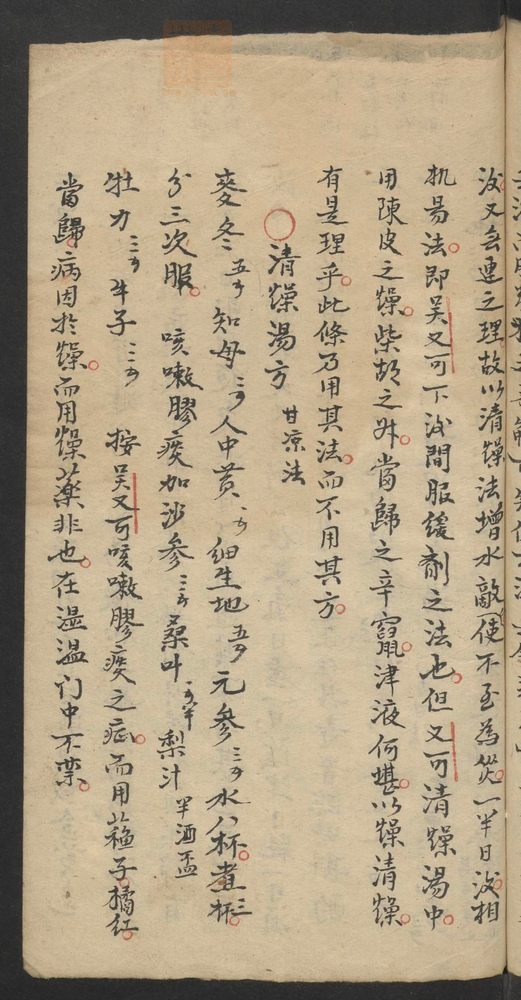 後又無連之理故以清燥法增水敵使不至為灾一半日後相
机易法即吴又可下後間服緩剤之法也但又可清燥湯中
用陳皮之燥柴胡之升當歸之辛竄津液何堪以燥清燥
有是理乎此條乃用其法而不用其方
○清燥湯方 甘凉法
麥冬 五錢 知母 二錢 人中黄 細生地 五錢 元參 三錢 水八杯煮三杯
分三次服 咳嗽膠痰加沙参 三錢 桑叶 梨汁 半酒盃
牡力 三錢 牛子 三錢 按吴又可咳嗽膠痰之症而用蘓子橘红
當歸病因於燥而用燥藥非也在湿温门中不禁